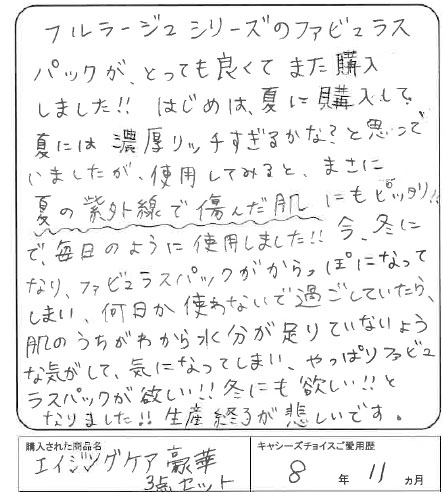 フルラージュシリーズのファビュラス
パックが、とっても良くてまた購入
しました!! はじめは、夏に購入して、
夏には濃厚リッチすぎるかな?と思って
いましたが、使用してみると、まさに
夏の紫外線で傷んだ肌にもピッタリ!!
で、毎日のように使用しました!! 今、冬に
なり、ファビュラスパックがからっぽになって
しまい、何日か使わないで過ごしていたら、
肌のうちがわから水分が足りていないよう
な気がして、気になってしまい、やっぱりファビュ
ラスパックが欲しい!! 冬にも欲しい!!と
なりました!! 生産終了が悲しいです。
購入された商品名
エイジングケア豪華
3点セット
キャシーズチョイスご愛用歴
8年11ヵ月